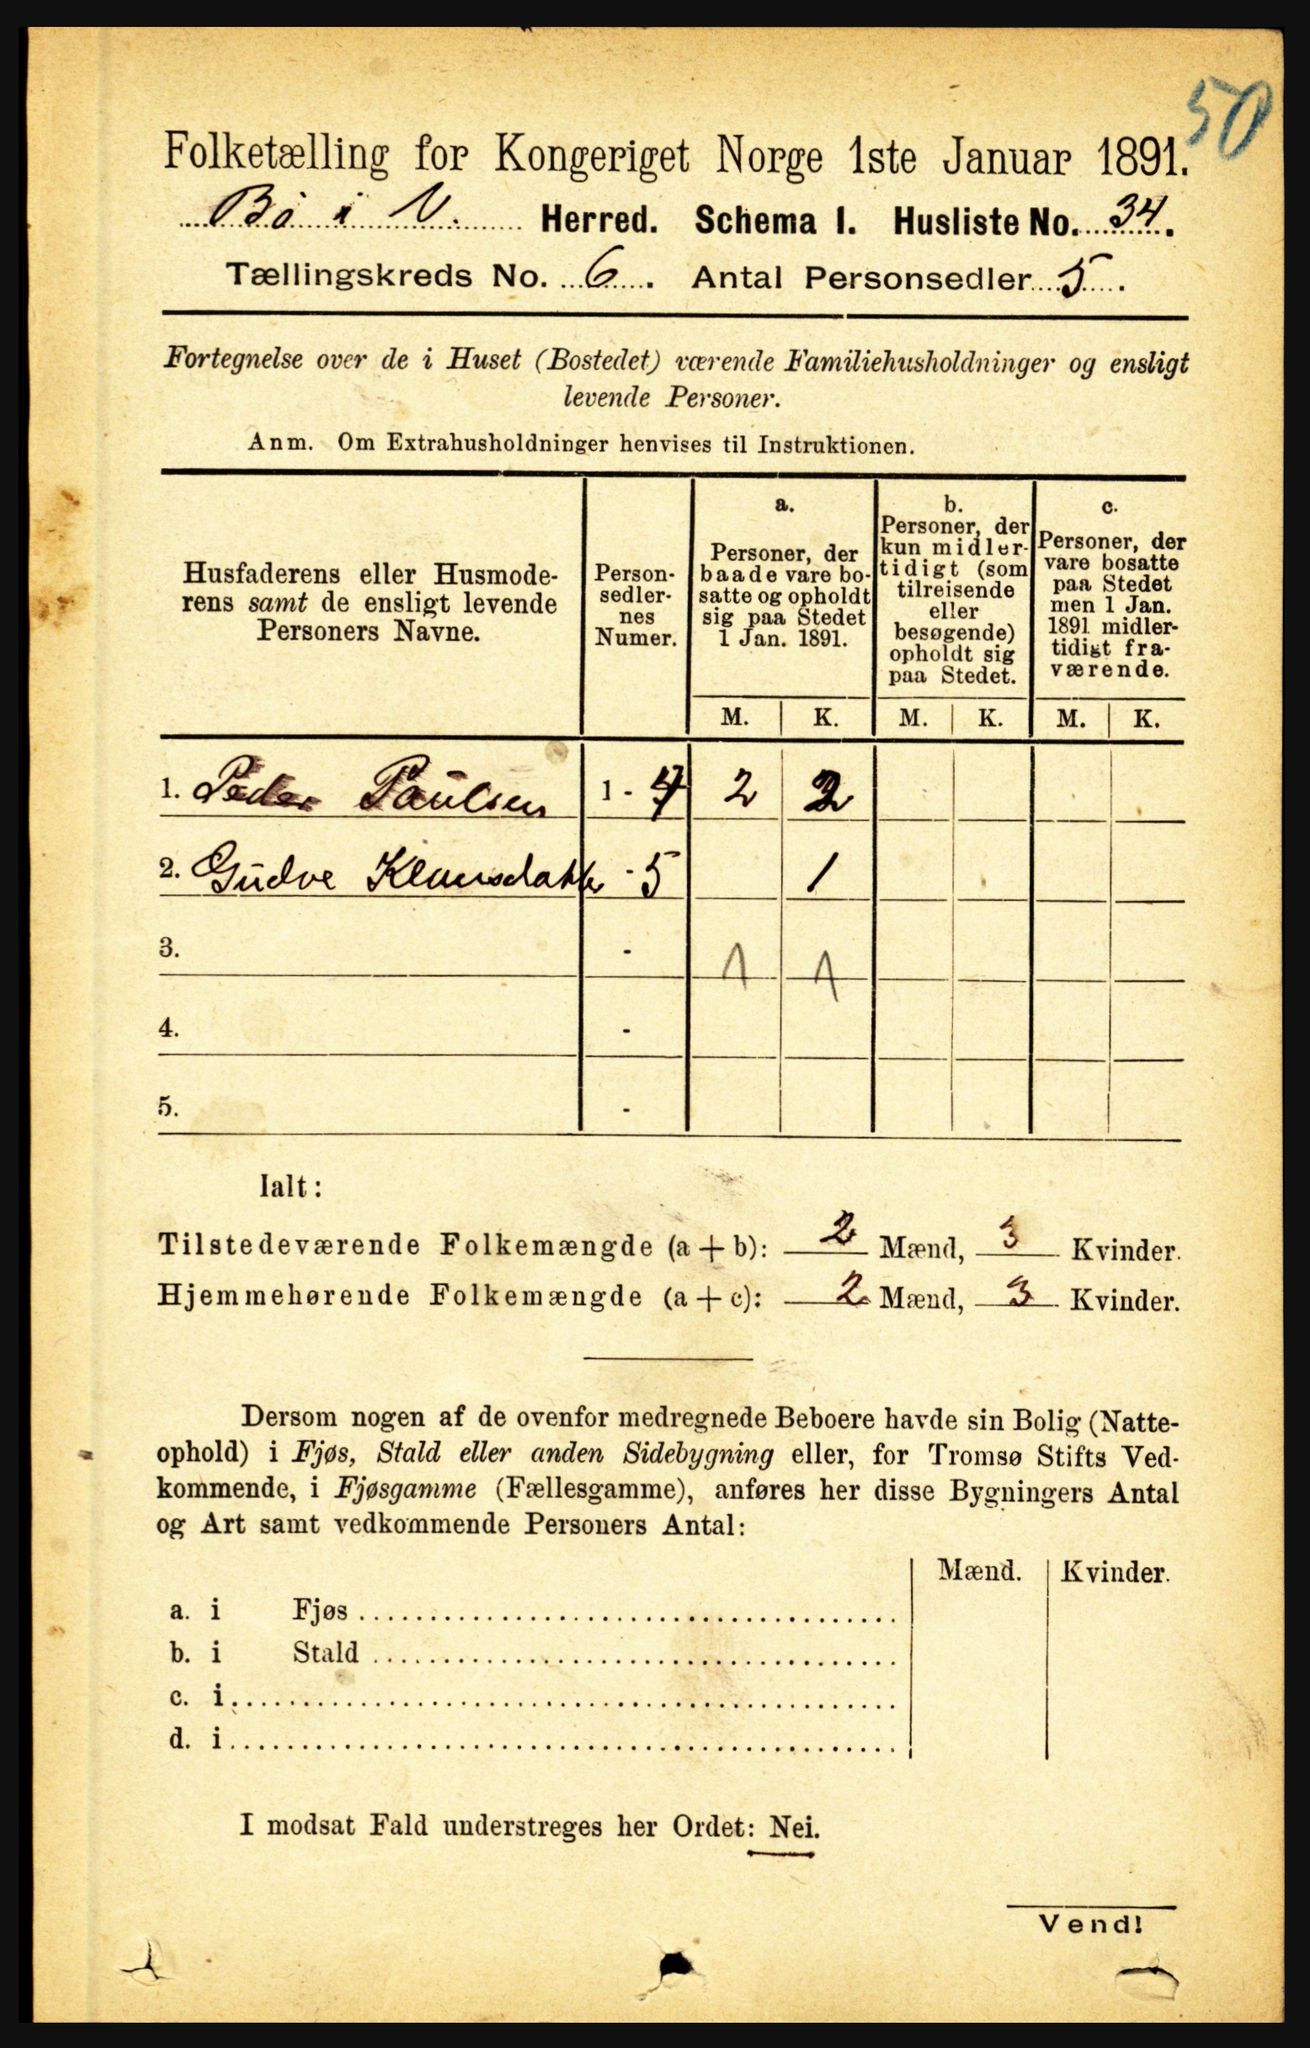 50
Folketælling for Kongeriget Norge 1ste Januar 1891.
Bö i V. Herred. Schema I. Husliste No. 34.
Tællingskreds No. 6. Antal Personsedler 5.
Fortegnelse over de i Huset (Bostedet) værende Familiehusholdninger og ensligt
levende Personer.
Anm. Om Extrahusholdninger henvises til Instruktionen.
Husfaderens eller Husmode-
rens samt de ensligt levende
Personers Navne.
Person-
sedler-
nes
Numer.
a.
Personer, der
baade vare bo-
satte og opholdt
sig paa Stedet
1 Jan. 1891.
b.
Personer, der
kun midler-
tidigt (som
tilreisende
eller
besøgende)
opholdt sig
paa Stedet.
c.
Personer, der
vare bosatte
paa Stedet
men 1 Jan.
1891 midler-
tidigt fra-
værende.
M. K. M. K. M. K.
1. Peder Paulsen 1 - 4 2 2
2. Gudve Klausdatter - 5 1
3. - 1 1
4. -
5. -
Ialt:
Tilstedeværende Folkemængde (a + b): 2 Mænd, 3 Kvinder.
Hjemmehørende Folkemængde (a + c): 2 Mænd, 3 Kvinder.
Dersom nogen af de ovenfor medregnede Beboere havde sin Bolig (Natte-
ophold) i Fjøs, Stald eller anden Sidebygning eller, for Tromsø Stifts Ved-
kommende, i Fjøsgamme (Fællesgamme), anføres her disse Bygningers Antal
og Art samt vedkommende Personers Antal:
Mænd. Kvinder.
a. i Fjøs
b. i Stald
c. i
d. i
I modsat Fald understreges her Ordet: Nei.
Vend!